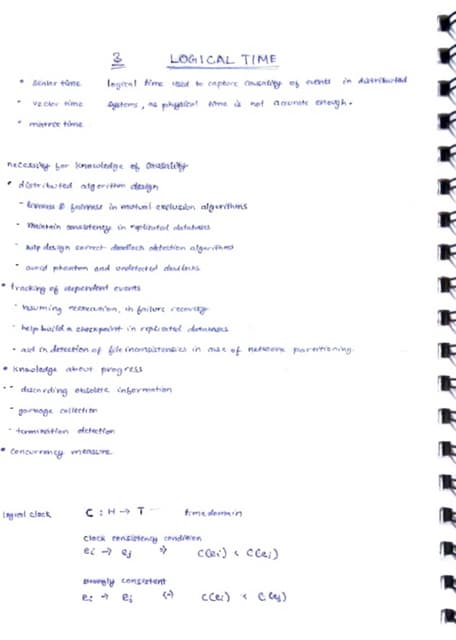 3 LOGICAL TIME
• scalar time logical time used to capture causality of events in distributed
• vector time systems, as physical time is not accurate enough.
• matrix time
necessity for knowledge of causality
• distributed algorithm design
- liveness & fairness in mutual exclusion algorithms
- maintain consistency in replicated databases
- help design correct deadlock detection algorithms
- avoid phantom and undetected deadlocks
• tracking of dependent events
- resuming reexecution, in failure recovery
- help build a checkpoint in replicated databases
- aid in detection of file inconsistencies in case of network partitioning.
• knowledge about progress
- discarding obsolete information
- garbage collection
- termination detection
• concurrency measure
logical clock C : H → T time domain
clock consistency condition
ei → ej ⇒ C(ei) < C(ej)
strongly consistent
ei → ej ⇔ C(ei) < C(ej)